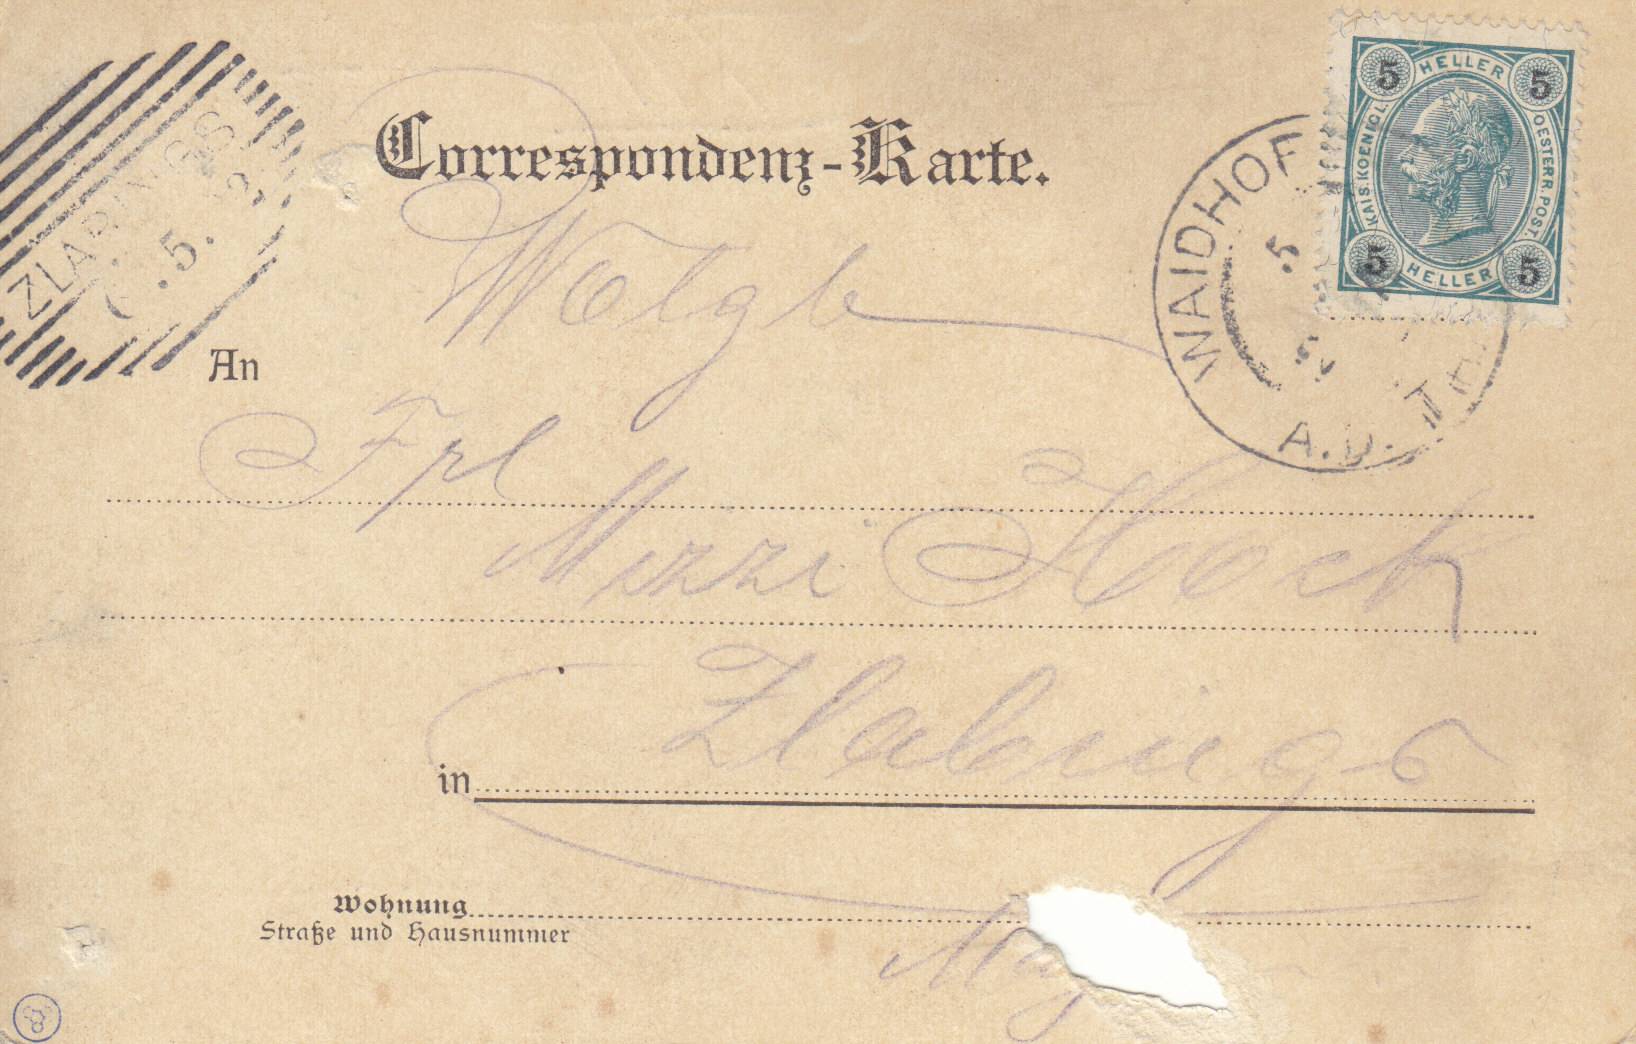 Correspondenz-Karte.
5 HELLER 5
KAIS. KOENIGL. OESTERR. POST.
5 HELLER 5
WAIDHOF
5
A.D. TH
ZLABINGS
.5.
Wolgb
An
Frl
Mizzi Hock
in Zlabings
Wohnung
Straße und Hausnummer